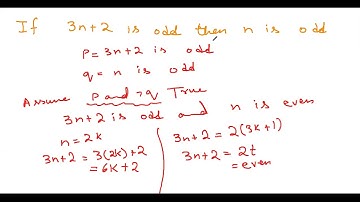 If 3n+2 is odd then n is odd
p = 3n+2 is odd
q = n is odd
Assume p and ¬q True
3n+2 is odd and n is even
n = 2k
3n+2 = 3(2k)+2
= 6k+2
3n+2 = 2(3k+1)
3n+2 = 2t
= even